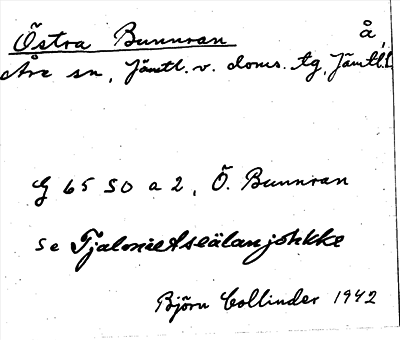 Östra Bunnran å,
Åre sn, Jämtl. v. doms. tg, Jämtl. l.
G 65 SO a 2, Ö. Bunnran
se
Björn Collinder 1942